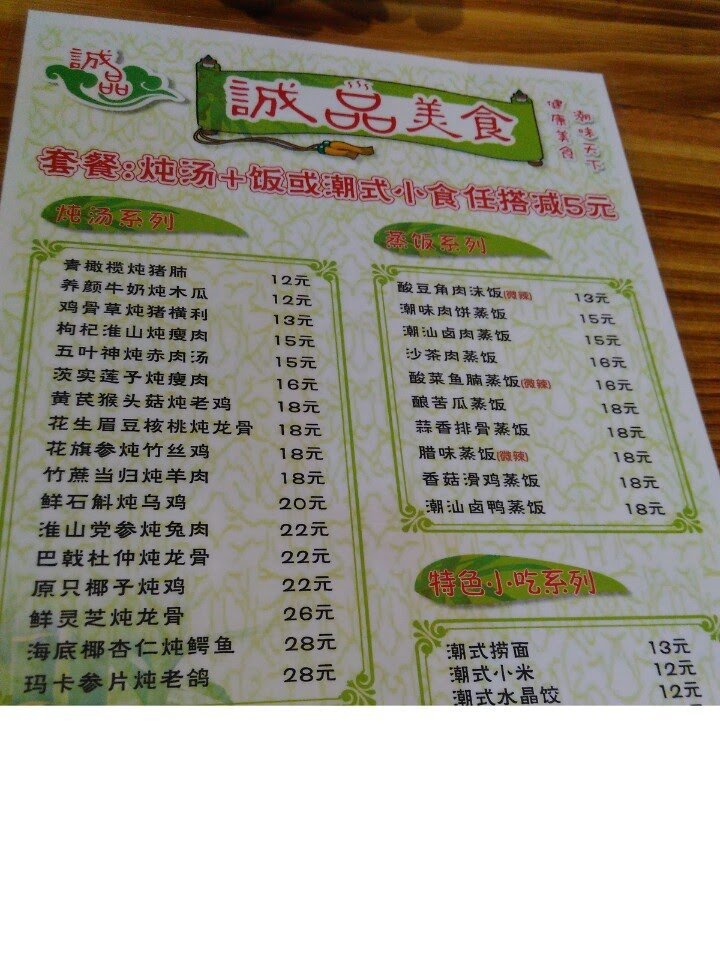 誠品
誠品美食
潮味天下
健康美食
套餐:炖汤+饭或潮式小食任搭减5元
炖汤系列
青橄榄炖猪肺 12元
养颜牛奶炖木瓜 12元
鸡骨草炖猪横利 13元
枸杞淮山炖瘦肉 15元
五叶神炖赤肉汤 15元
茨实莲子炖瘦肉 16元
黄芪猴头菇炖老鸡 18元
花生眉豆核桃炖龙骨 18元
花旗参炖竹丝鸡 18元
竹蔗当归炖羊肉 18元
鲜石斛炖乌鸡 20元
淮山党参炖兔肉 22元
巴戟杜仲炖龙骨 22元
原只椰子炖鸡 22元
鲜灵芝炖龙骨 26元
海底椰杏仁炖鳄鱼 28元
玛卡参片炖老鸽 28元
蒸饭系列
酸豆角肉沫饭(微辣) 13元
潮味肉饼蒸饭 15元
潮汕卤肉蒸饭 15元
沙茶肉蒸饭 16元
酸菜鱼腩蒸饭(微辣) 16元
酿苦瓜蒸饭 18元
蒜香排骨蒸饭 18元
腊味蒸饭(微辣) 18元
香菇滑鸡蒸饭 18元
潮汕卤鸭蒸饭 18元
特色小吃系列
潮式捞面 13元
潮式小米 12元
潮式水晶饺 12元